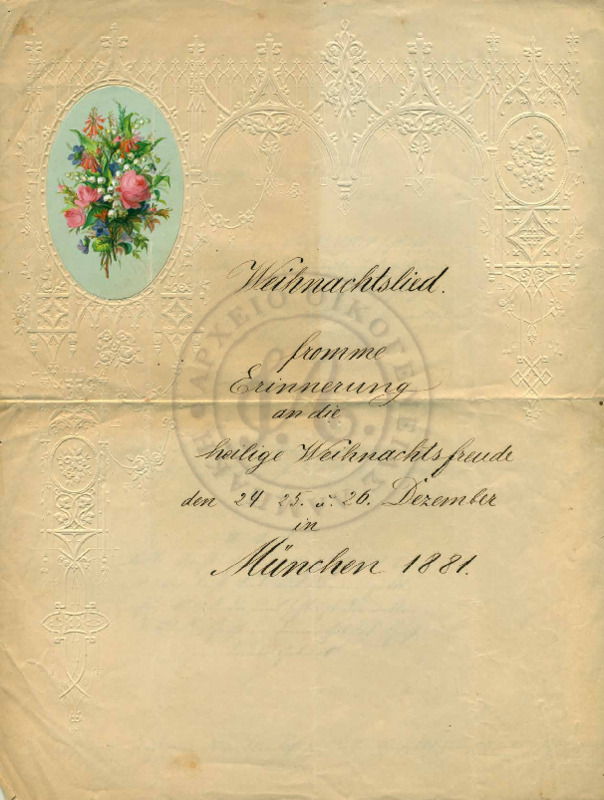 Weihnachtslied.
fromme
Erinnerung
an die
heilige Weihnachtsfreude
den 24 25. u. 26. Dezember
in
München 1881.
ΑΡΧΕΙΟ ΟΙΚΟΓΕΝΕΙΑΣ